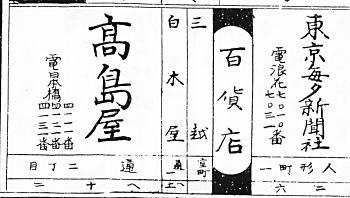 東京毎夕新聞社
電浪花 七〇一〇番
七〇三一番
人形町一
二六
百貨店
三越
室町
白木屋
通一
高島屋
電日本橋 四一一一番
四一二一番
四一三一番
通二丁目
八十二